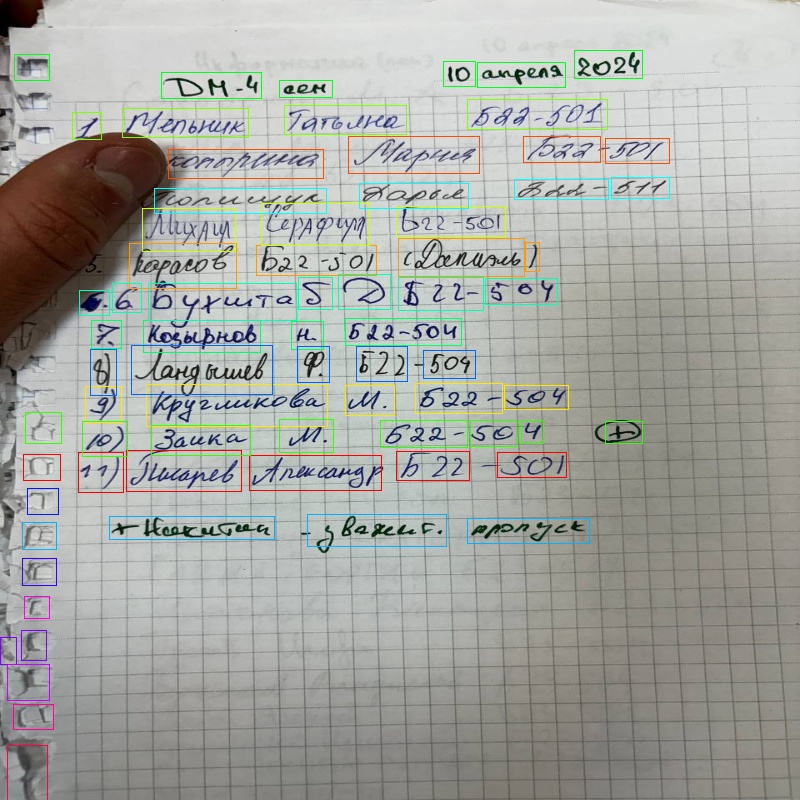 DM-4 сем 10 апреля 2024
1. Мельник Татьяна Б22-501
Мария Б22-501
Полищук Дарья Б22-511
Михаил Серафим Б22-501
5. Карасов Б22-501 (Даниэль)
6. Бухшта Б Д Б22-504
7. Козырнов Н. Б22-504
8) Ландышев Ф. Б22-504
9) Кругликова М. Б22-504
10) Заика М. Б22-504 +
11) Писарев Александр Б22-501
+ Никитин - уважит. пропуск